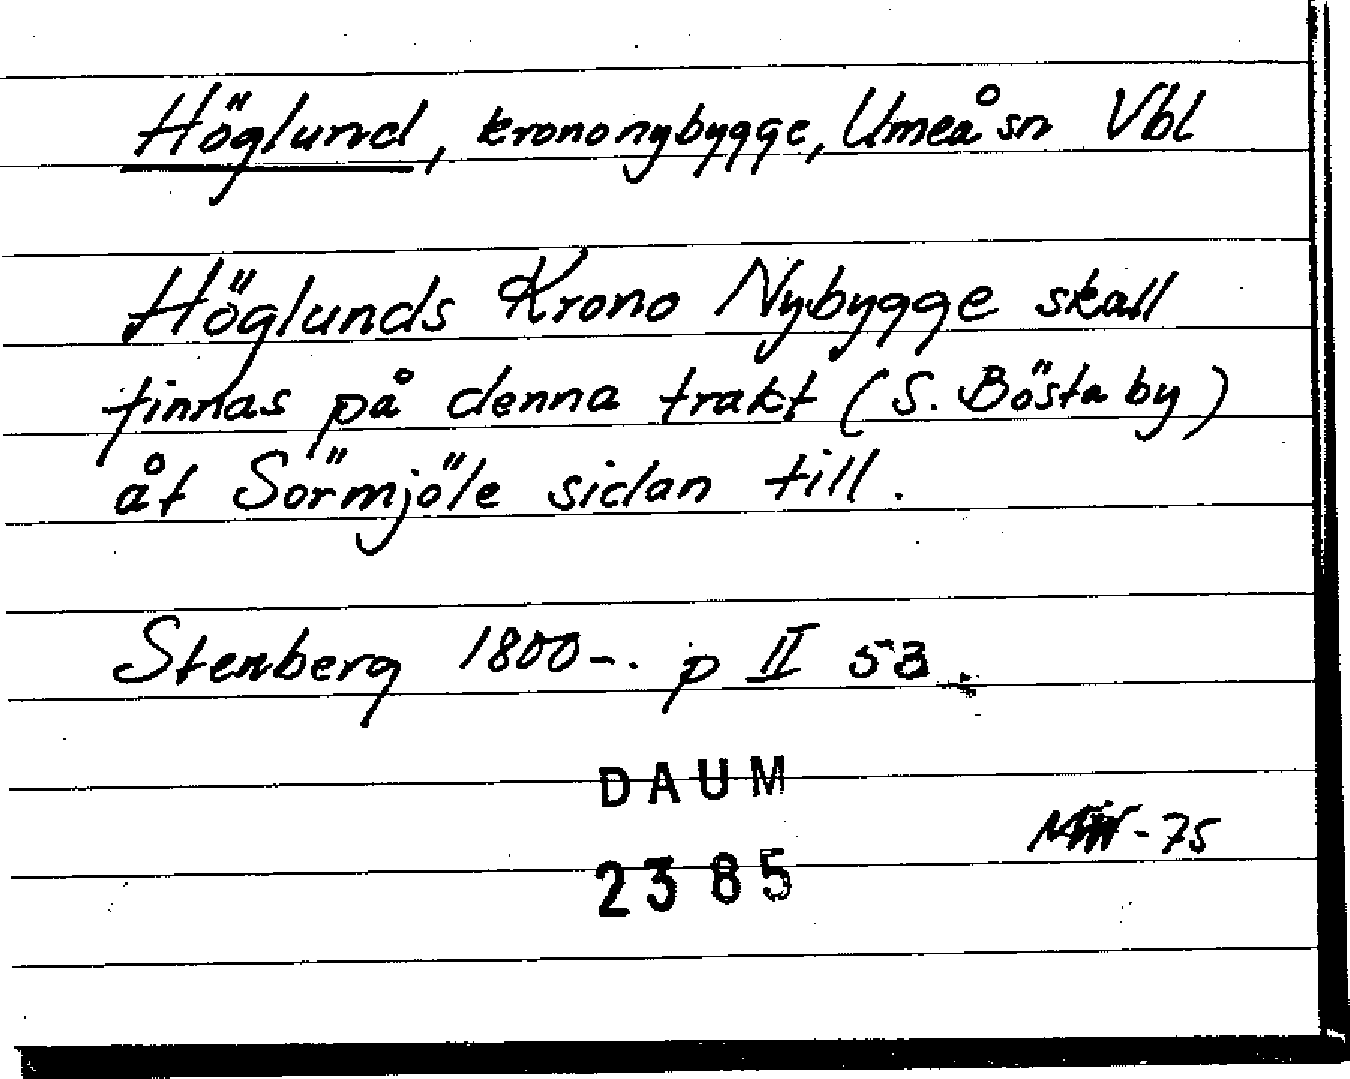 Höglund, krononybygge, Umeå sn Vbl
Höglunds Krono Nybygge skall
finnas på denna trakt (S. Bösta by)
åt Sörmjöle sidan till.
Stenberg 1800-. p II 53.
DAUM
2385
-75